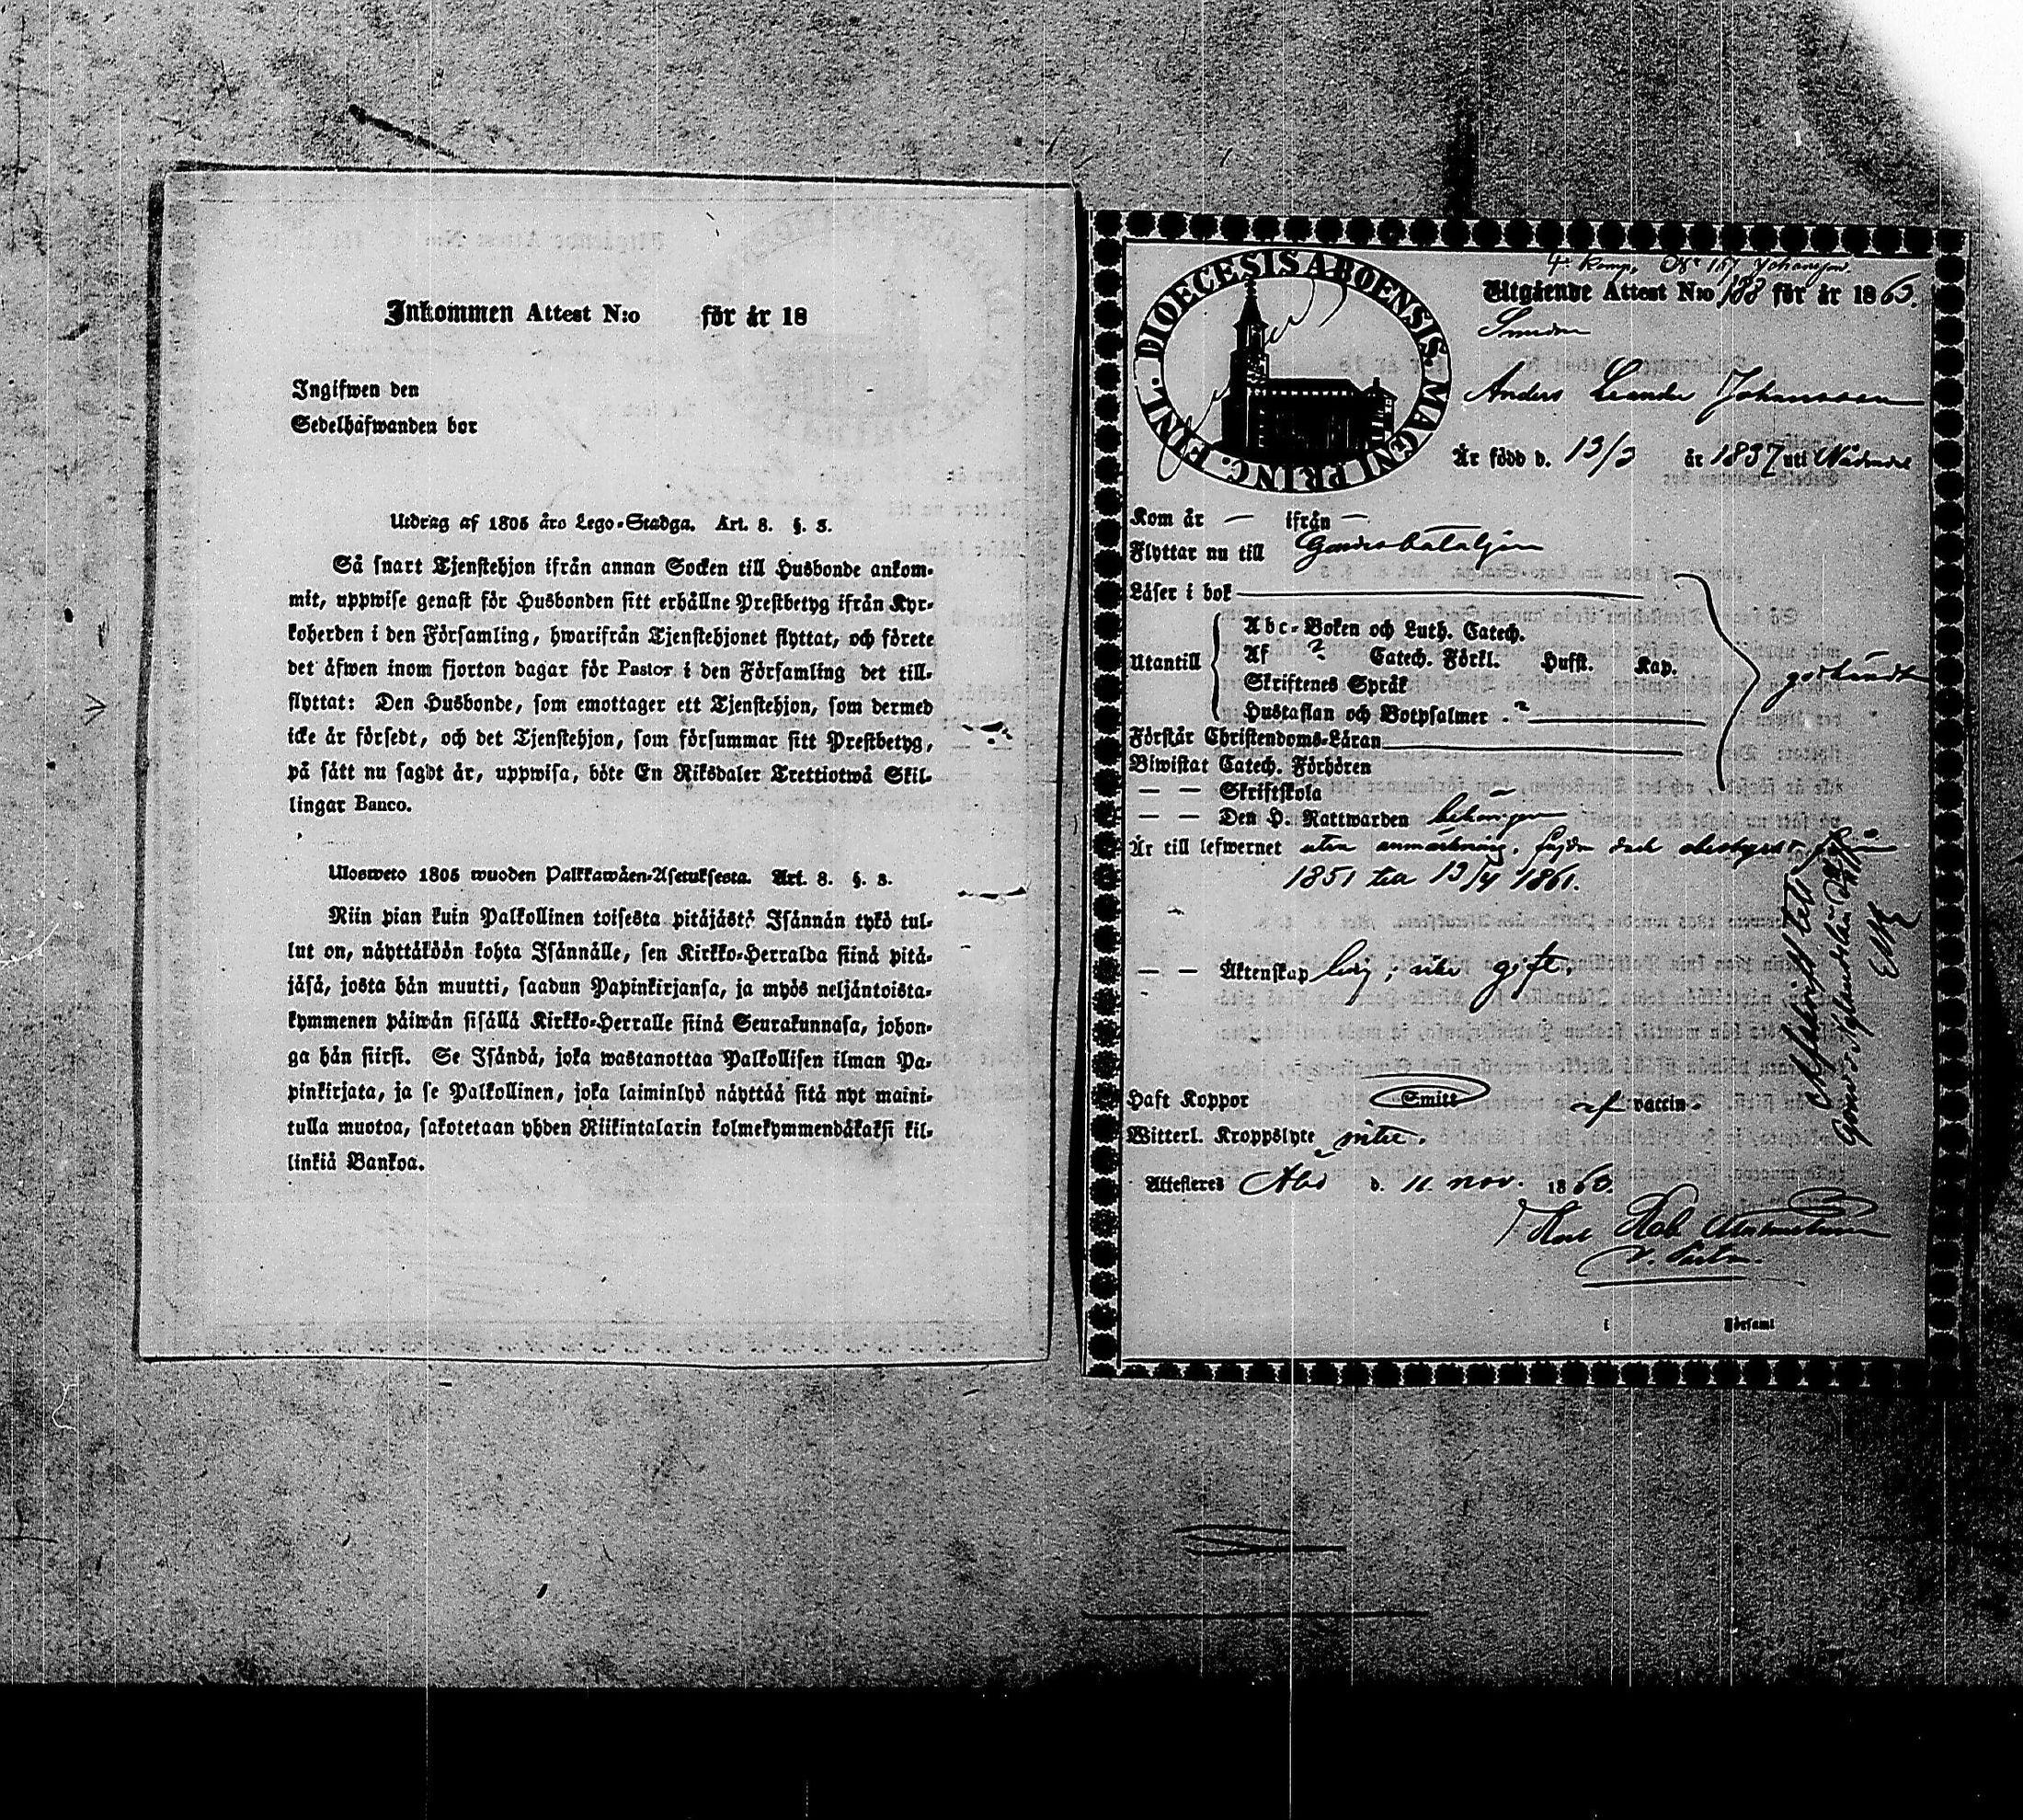 Inkommen Attest N:o för år 18
Ingifwen den
Sedelhafwanden bor
Utdrag af 1805 års Lego-Stadga. Art. 8. §. 3.
Så snart Tjenstehjon ifrån annan Socken till Husbonde ankom-
mit, uppwise genast för Husbonden sitt erhållne Prestbetyg ifrån Kyr-
koherden i den Församling, hwarifrån Tjenstehjonet flyttat, och förete
det äfwen inom fjorton dagar för Pastor i den Församling det till-
flyttat: Den Husbonde, som emottager ett Tjenstehjon, som dermed
icke är försedt, och det Tjenstehjon, som försummar sitt Prestbetyg,
på sätt nu sagdt är, uppwisa, böte En Riksdaler Trettiotwå Skil-
lingar Banco.
Ulosweto 1805 wuoden Palkkawäen-Asetuksesta. Art. 8. §. 3.
Niin pian kuin Palkollinen toisesta pitäjästä Isännän tykö tul-
lut on, näyttäköön kohta Isännälle, sen Kirkko-Herralda siinä pitä-
jäsä, josta hän muutti, saadun Papinkirjansa, ja myös neljäntoista-
kymmenen päiwän sisällä Kirkko-Herralle siinä Seurakunnasa, johon-
ga hän siirsi. Se Isändä, joka wastanottaa Palkollisen ilman Pa-
pinkirjata, ja se Palkollinen, joka laiminlyö näyttää sitä nyt maini-
tulla muotoa, sakotetaan yhden Riikintalarin kolmekymmendäkaksi kil-
linkiä Bankoa.
DIOECESIS ABOENSIS. MAGNI PRINC. FINL.
4e Komp. No Johansson.
Utgående Attest N:o 188 för år 1863.
Anders Leander Johansson
Är född d. 13/3 år 1837 uti Nådendal
Kom år — ifrån —
Flyttar nu till Gardesbataljon
Läser i bok
Utantill
Abc-Boken och Luth. Catech.
Af Catech. Förkl. Hufst. Kap.
Skriftenes Språk
Hustaflan och Botpsalmer
godkändt
Förstår Christendoms-Läran
Biwistat Catech. Förhören
— — Skriftskola
— — Den H. Nattwarden behörigen
Är till lefwernet utan anmärkning,
1851 till 13/4 1861.
— — Äktenskap ledig; icke gift.
Haft Koppor Smitt af vaccin.
Witterl. Kroppslyte intet.
Attesteres Åbo d. 11 nov. 1863.
Karl Rob. Malmström
v. Pastor.
i Församl
Afskrift tett